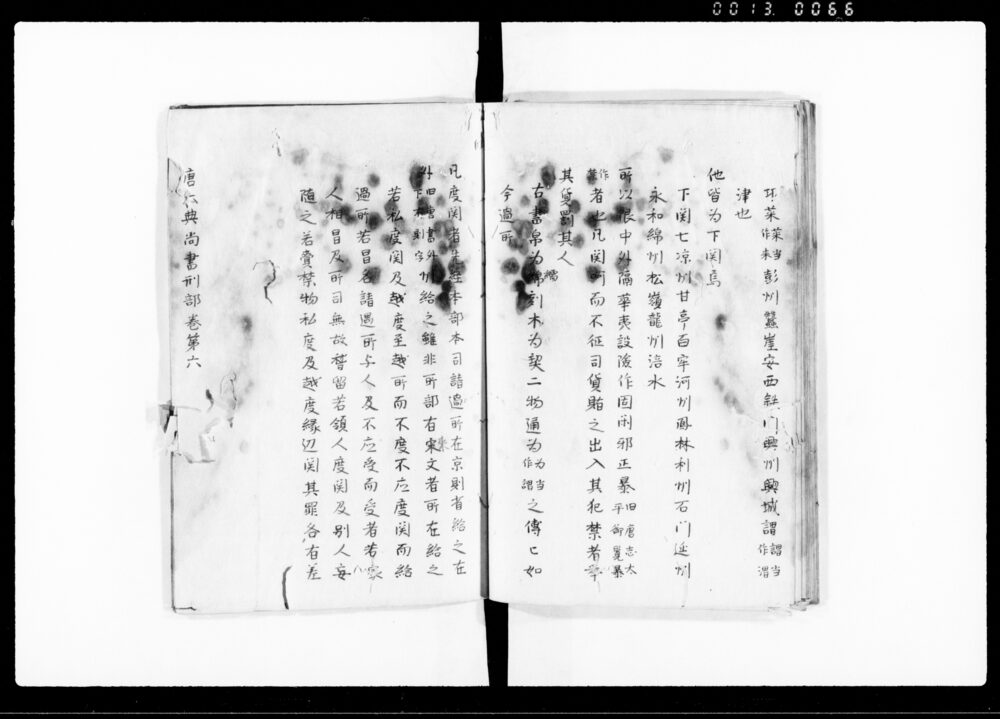 0013. 0066
环菜菜当作来彭州蠶崖安西鉄門興州興城謂謂当作渭
津也
他皆为下関焉
下関七凉州甘亭百牢河州鳳林利州石门延州
永和綿州松嶺龍州涪水
所以限中外隔華夷設險作固闲邪正暴旧唐志太平御覧暴
作禁者也凡関呵而不征司貨賄之出入其犯禁者挙
其貨罰其人
古書帛为繻刻木为契二物通为为当作謂之傳亡如
今過所
凡度関者先経本部本司請過所在京則省給之在
外旧唐書外下有則字州給之雖非所部有来文者所在給之
若私度関及越度至越所而不度不应度関而給
過所若冒名請過所与人及不应受而受者若家
人相冒及所司無故稽留若領人度関及别人妄
随之若賷禁物私度及越度縁辺関其罪各有差
唐六典尚書刑部巻第六